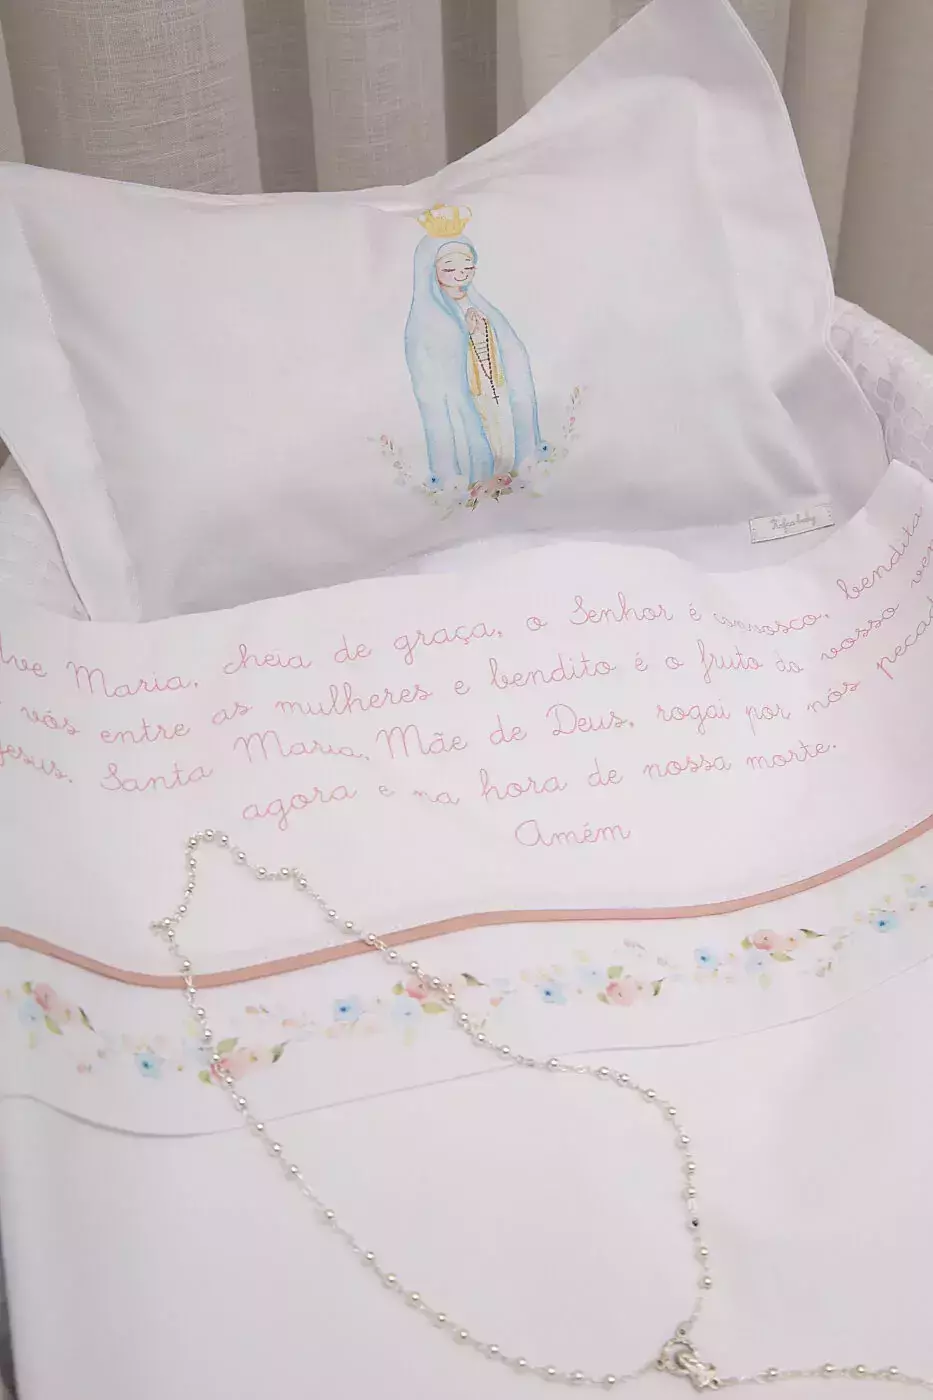 ve Maria, cheia de graça, o Senhor é convosco, bendita
vós entre as mulheres e bendito é o fruto do vosso ven
Jesus. Santa Maria, Mãe de Deus, rogai por nós pecad
agora e na hora de nossa morte.
Amém